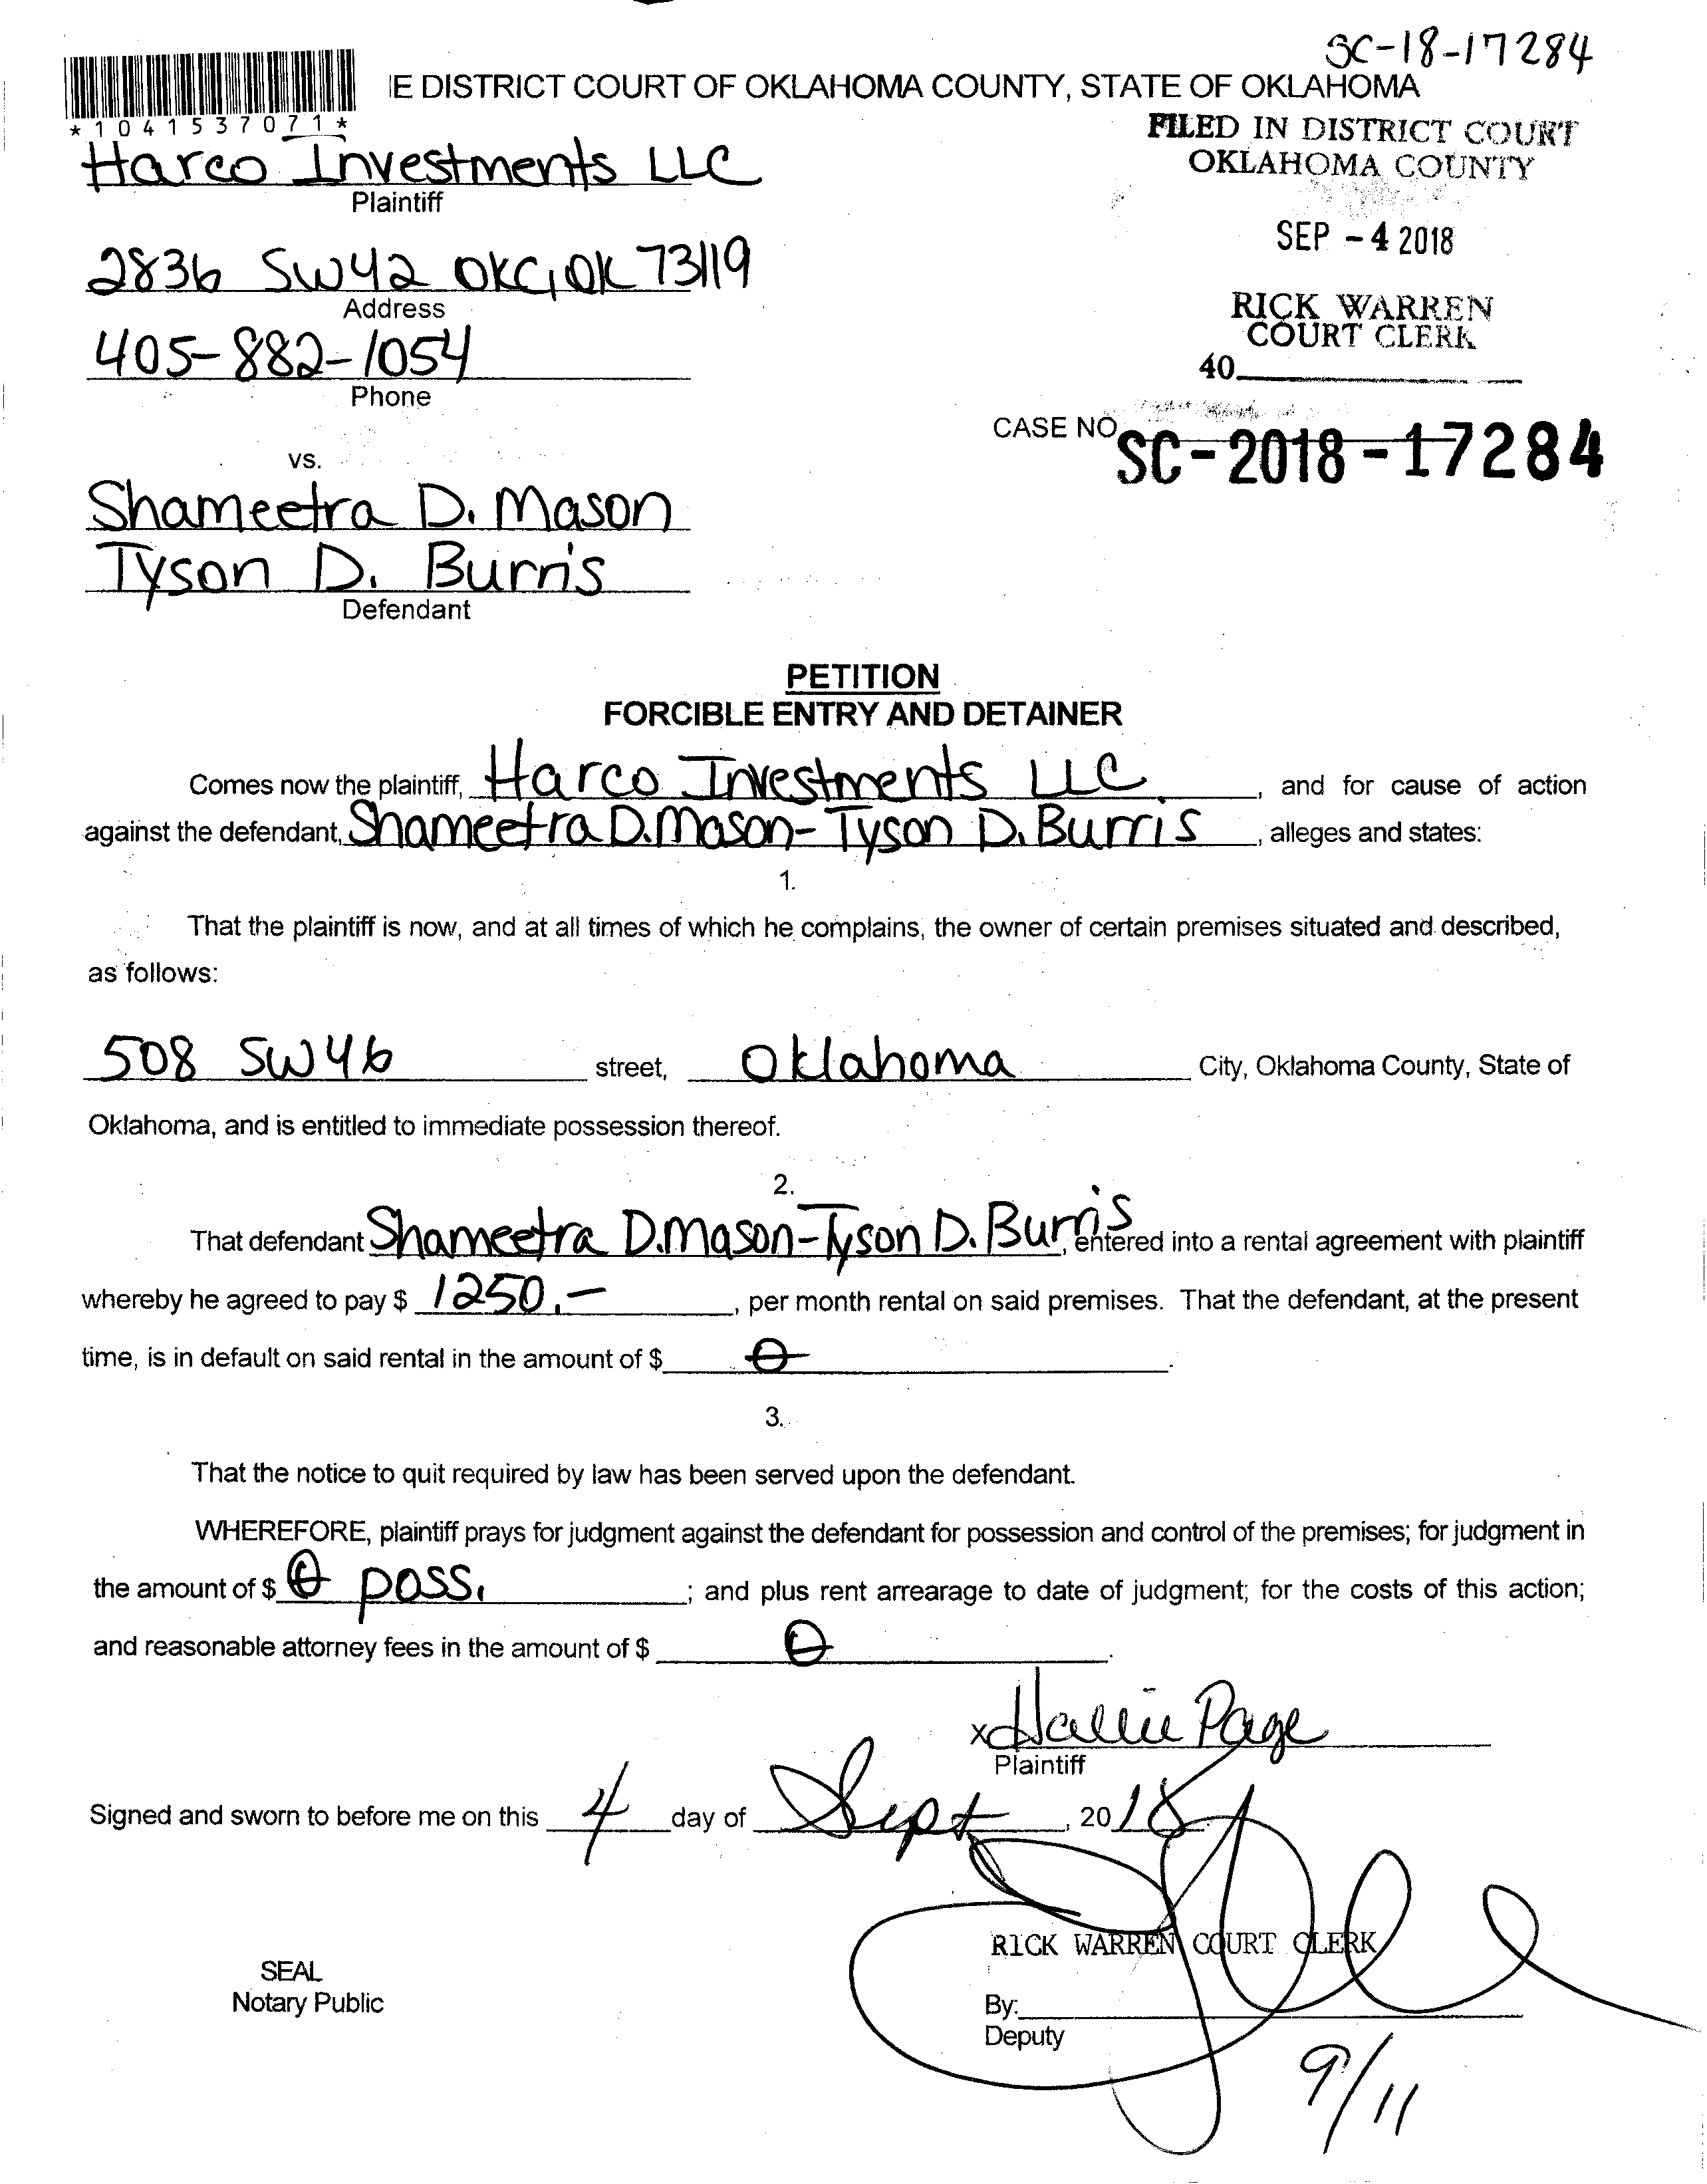 SC-18-17284
E DISTRICT COURT OF OKLAHOMA COUNTY, STATE OF OKLAHOMA
*1041537071*
FILED IN DISTRICT COURT
OKLAHOMA COUNTY
Harco Investments LLC
Plaintiff
SEP - 4 2018
2836 SW42 OKC, OK 73119
Address
RICK WARREN
COURT CLERK
405-882-1054
Phone
40
CASE NO. SC-2018-17284
vs.
Shameetra D. Mason
Tyson D. Burris
Defendant
PETITION
FORCIBLE ENTRY AND DETAINER
Comes now the plaintiff, Harco Investments LLC, and for cause of action
against the defendant, Shameetra D. Mason-Tyson D. Burris, alleges and states:
1.
That the plaintiff is now, and at all times of which he complains, the owner of certain premises situated and described,
as follows:
508 SW46 street, Oklahoma City, Oklahoma County, State of
Oklahoma, and is entitled to immediate possession thereof.
2.
That defendant Shameetra D. Mason-Tyson D. Burris, entered into a rental agreement with plaintiff
whereby he agreed to pay $ 1250.-, per month rental on said premises. That the defendant, at the present
time, is in default on said rental in the amount of $ 0.
3.
That the notice to quit required by law has been served upon the defendant.
WHEREFORE, plaintiff prays for judgment against the defendant for possession and control of the premises; for judgment in
the amount of $ 0 poss.; and plus rent arrearage to date of judgment; for the costs of this action;
and reasonable attorney fees in the amount of $ 0.
x Hallie Page
Plaintiff
Signed and sworn to before me on this 4 day of Sept, 2018
RICK WARREN COURT CLERK
SEAL
Notary Public
By:
Deputy
9/11